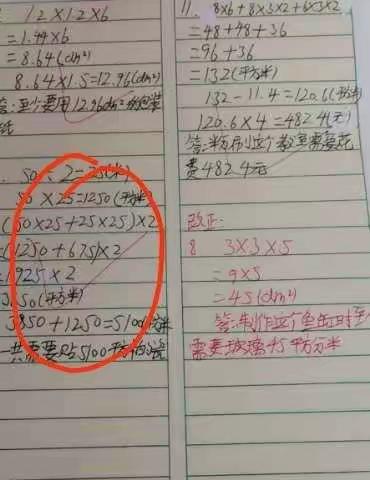 1.2×1.2×6
=1.44×6
=8.64(dm²)
8.64×1.5=12.96(dm²)
答:至少要用12.96dm²的包装
纸
50÷2=25(米)
50×25=1250(平方米)
(50×25+25×25)×2
=(1250+675)×2
=1925×2
=3850(平方米)
3850+1250=5100平方米
一共需要贴5100平方米的瓷
11. 8×6+8×3×2+6×3×2
=48+48+36
=96+36
=132(平方米)
132-11.4=120.6(平方米)
120.6×4=482.4(元)
答:粉刷这个教室需要花
费482.4元
改正:
8 3×3×5
=9×5
=45(dm²)
答:制作这个鱼缸时至少
需要玻璃45平方分米